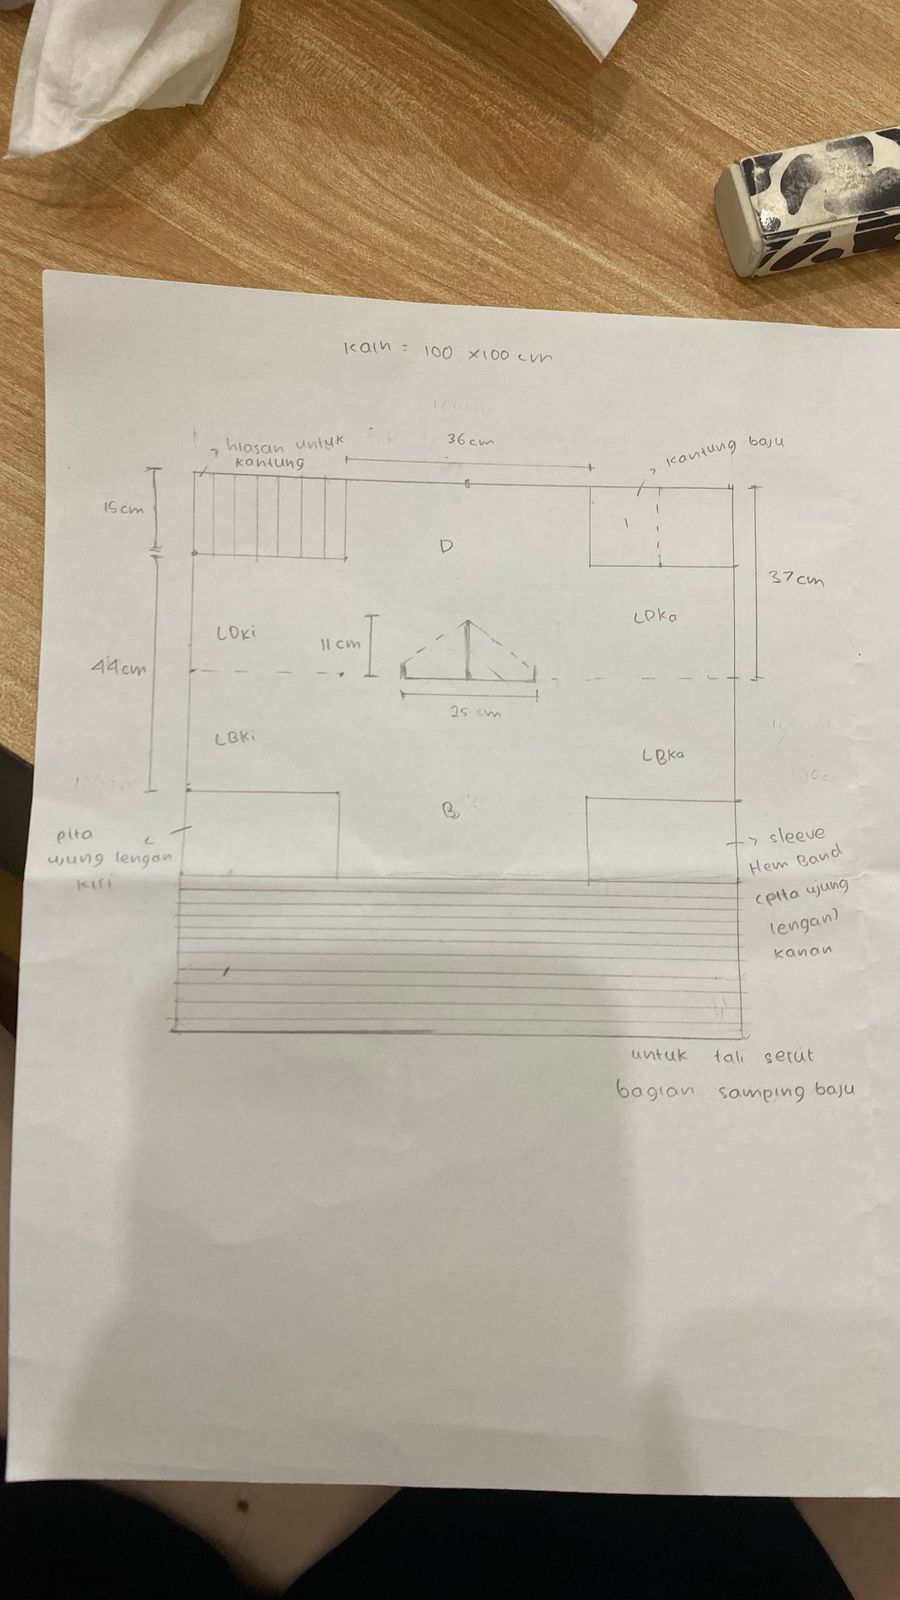 kain = 100 x100 cm
hiasan untuk
kantung
36cm
kantung baju
15cm
D
37cm
LDKi
11cm
LDka
44cm
25 cm
LBKi
LBka
B
pita
ujung lengan
kiri
sleeve
Hem Band
(pita ujung
lengan)
kanan
untuk tali serut
bagian samping baju